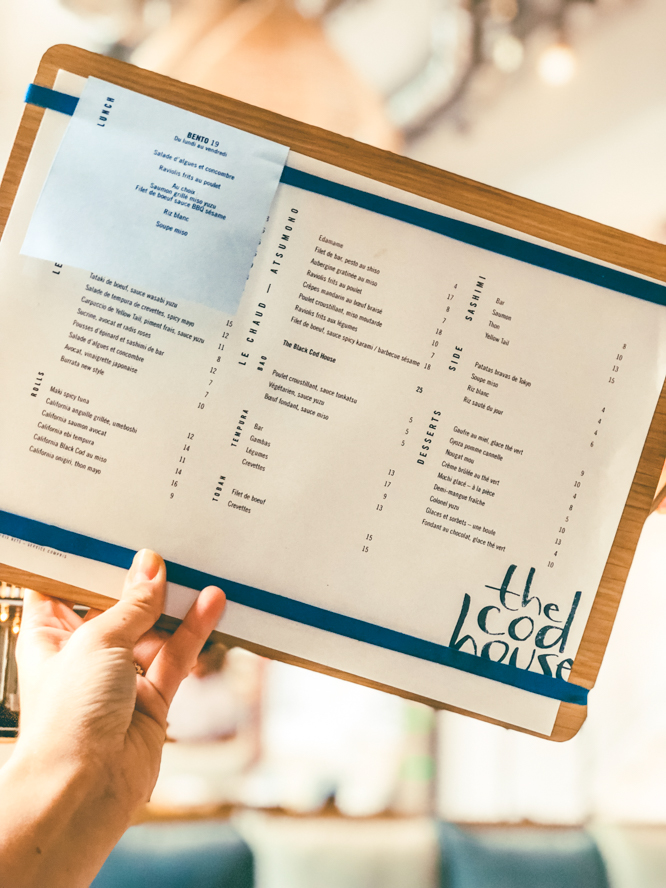 LUNCH
BENTO 19
Du lundi au vendredi
Salade d'algues et concombre
Raviolis frits au poulet
Au choix
Saumon grillé miso yuzu
Filet de boeuf sauce BBQ sésame
Riz blanc
Soupe miso
LE
Tataki de boeuf, sauce wasabi yuzu
Salade de tempura de crevettes, spicy mayo 15
Carpaccio de Yellow Tail, piment frais, sauce yuzu 12
Sucrine, avocat et radis roses 11
Pousses d'épinard et sashimi de bar 8
Salade d'algues et concombre 12
Avocat, vinaigrette japonaise 7
Burrata new style 7
10
ROLLS
Maki spicy tuna
California anguille grillée, umeboshi 12
California saumon avocat 14
California ebi tempura 11
California Black Cod au miso 14
California onigiri, thon mayo 16
9
LE CHAUD — ATSUMONO
Edamame 4
Filet de bar, pesto au shiso 17
Aubergine gratinée au miso 8
Raviolis frits au poulet 7
Crêpes mandarin au boeuf braisé 18
Poulet croustillant, miso moutarde 10
Raviolis frits aux légumes 7
Filet de boeuf, sauce spicy karami / barbecue sésame 18
The Black Cod House 25
BAO
Poulet croustillant, sauce tonkatsu 5
Végétarien, sauce yuzu 5
Boeuf fondant, sauce miso 5
TEMPURA
Bar 13
Gambas 17
Légumes 9
Crevettes 13
TOBAN
Filet de boeuf 15
Crevettes 15
SASHIMI
Bar 8
Saumon 10
Thon 13
Yellow Tail 15
SIDE
Patatas bravas de Tokyo 4
Soupe miso 4
Riz blanc 4
Riz sauté du jour 6
DESSERTS
Gaufre au miel, glace thé vert 9
Gyoza pomme cannelle 10
Nougat mou 4
Crème brûlée au thé vert 8
Mochi glacé – à la pièce 5
Demi-mangue fraîche 10
Colonel yuzu 8
Glaces et sorbets – une boule 4
Fondant au chocolat, glace thé vert 10
the
cod
house